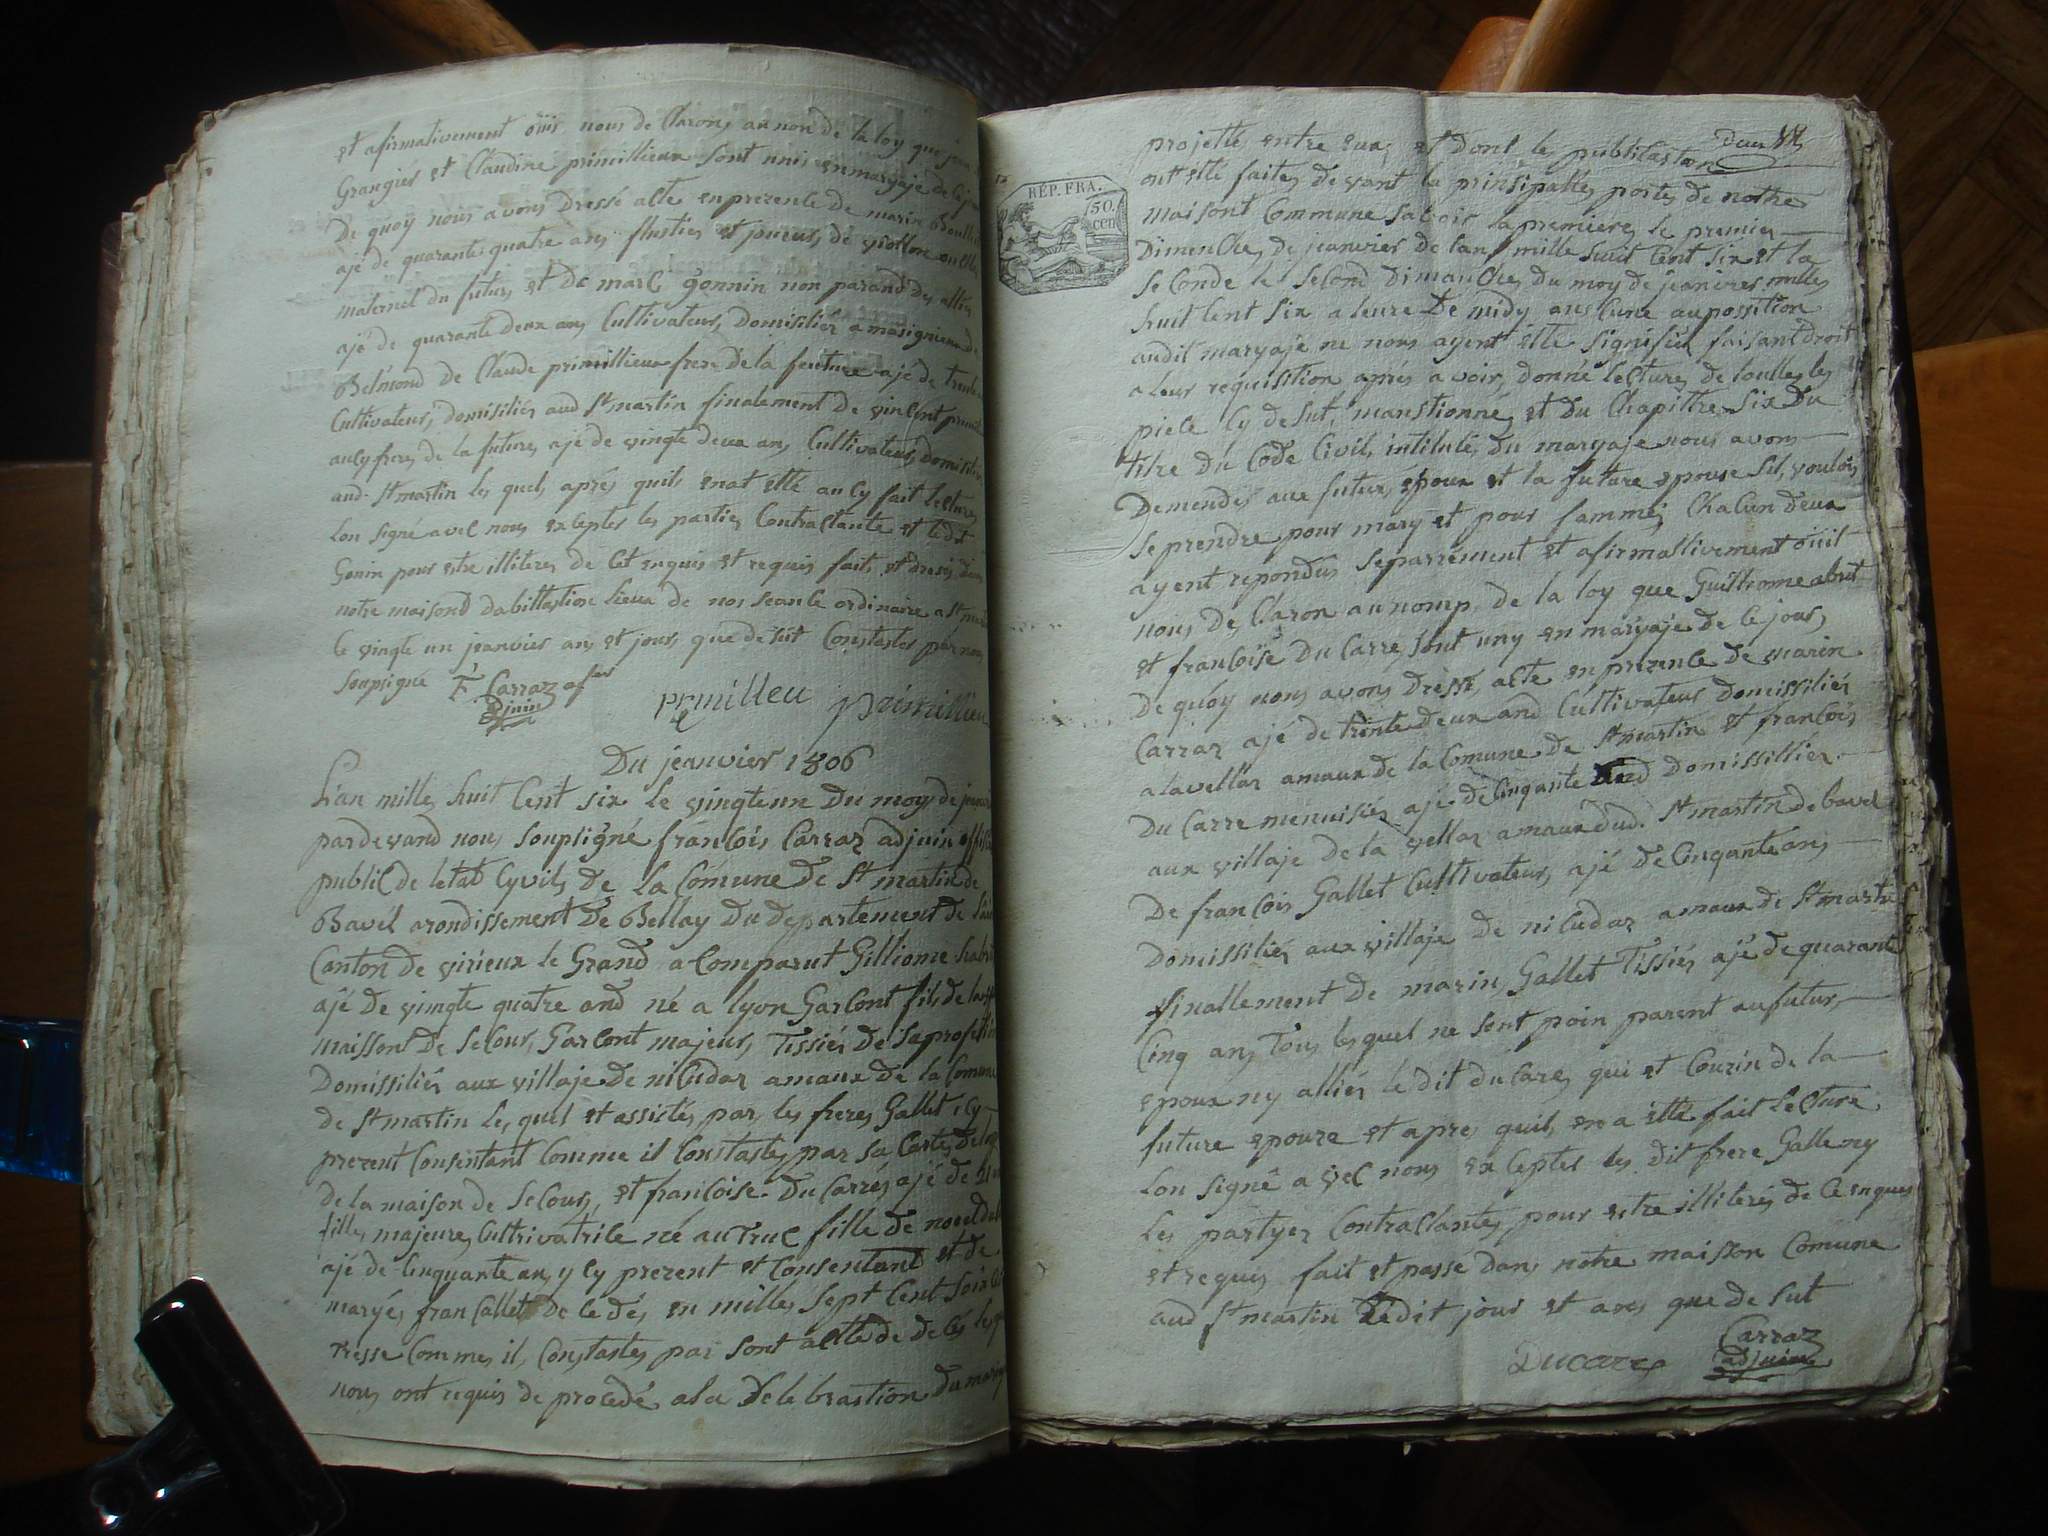 et afirmativement öüis nous de Clarons au non de la loy que
Grangier et Claudine primillieux sont unis en maryaje de
De quoy nous avons Dressé acte en prezente de marin
ajé de quarante quatre ans flustier et joueur de viollon
maternel du futur, et De marc gonnin non parand Des
ajé de quarante deux ans Cultivateur, Domisilié a masignieux de
Belmond de Claude primillieux frere de la feuture ajé de
Cultivateur, domisiliés aud St martin finalement de vincent
aucy frere de la future ajé de vingte deux ans Cultivateur,
aud. St martin les quels aprés quils enat etté aucy fait lecture
Lon signé avec nous exsepter les parties Contractante et ledit
Gonin pour estre illiteres de Cet enquis et requis fait et
notre maisond dabittastion lieux de nos seance ordinaire a St
le vingte un jeanvier ans et jour, que de sut Constaster par nous
soupsigné F. Carraz
adjuin primilleu primillieu
Du jeanvier 1806
Lan mille huit Cent six le vingteun Du moy de
pardevand nous soupsigné francois Carraz adjuin
public de letat Cyvil, de la Cómune de St martin de
Bavel arondissement De Bellay Du departement de
Canton de virieux le Grand a Comparut Gilliome
ajé de vingte quatre and né a lyon Garcont fils de
maissont De seCour, Garcont majeur, Tissiér de sa profestion
Domissiliér aux villaje de niCudaz amaux de la Comune
de St martin le, quel et assistés par, les freres Gallet, icy
prezent Consentant Comme il Constaste, par sa Carte
de la maison de seCour, et francoise. Du Carré, ajé de
fille majeure, Cultrivatrice né au Truc fille de
ajé de Cinquante an, y Cy prezent et Consentant et de
maryés fran Callet de ce dés en mille, sept Cent
tresse Commes il, Constaster par sont actte de de cés
nous ont requis de procedé ala Celebrastion du
Deux
projetté entre eux, et Dont les publicastion
RÉP. FRA.
50
cen
ont etté faite, devant la prinsipalle, porte de notre
maisont Commune savoir la premiere, le premier
Dimenche, de jeanvier de lan mille huit Cent six et la
seConde le second Dimanche, du moy de jeanvier mille
huit Cent six a leure De midy aus Cune aupossition
audit maryaje ne nous ayent etté signifiée faisant Droit
a leur requisition aprés avoir, donné lecture, de
piece Cy de sut, manstionné, et du Chapittre Six Du
titre du Code Civil, intitulé, du maryaje nous avons
Demender aux futur, epoux et la future epouse sil, voulois
se prendre pour mary et pour famme, Chacun Deux
ayent repondus separrément et afirmattivement öüit
nous, De, Claron au nomp, de la loy que Guilliome abrit
et francoise Du Carre, sont uny en maryaje de ce jour,
De quoy nous avons Dressé, acte en prezence de marin
Carraz ajé de trente deux and Cultivateur Domissiliér
alavellaz amaux de la Comune de St martin et francois
Du Carre menuisiér ajé de Cinqante and Domissilliér.
aux villaje de la vellaz amaux dud. St martin de bavel
De francois Gallet Cultivateur, ajé de Cinqante ans
Domissiliér aux villaje de niCudaz amaux de St martin
finallement de marin, Gallet Tissiér ajé de quarante
Cinq ans Tous lesquel ne sont poin parent au futur,
epoux ny alliér le dit duCare, qui et Couzin de la
future epouze et apres quil, en a etté fait lecture
Lon signé avec nous exCepter les dit frere Galle ny
Les partyez Contractante, pour estre illiterés de Ce enques
et requis fait et passé dans notre maisson Comune
aud St martin Ledit jour et ans que de sut
Ducarre Carraz
adjuin